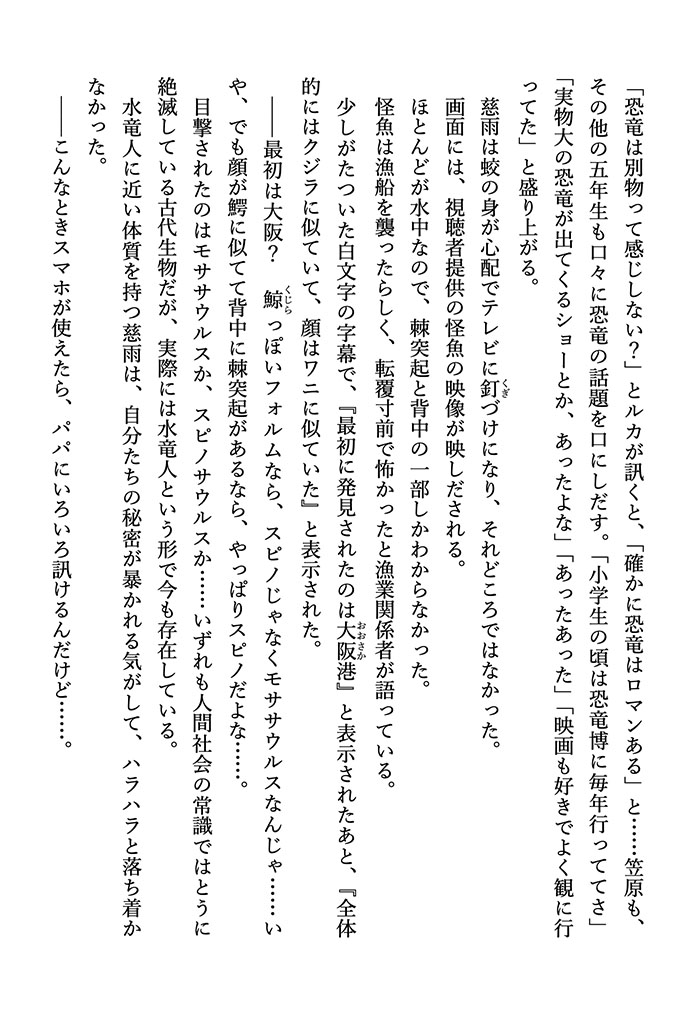 「恐竜は別物って感じしない？」とルカが訊くと、「確かに恐竜はロマンある」と……笠原も、
その他の五年生も口々に恐竜の話題を口にしだす。「小学生の頃は恐竜博に毎年行っててさ」
「実物大の恐竜が出てくるショーとか、あったよな」「あったあった」「映画も好きでよく観に行
ってた」と盛り上がる。
慈雨は蛟の身が心配でテレビに釘づけになり、それどころではなかった。
画面には、視聴者提供の怪魚の映像が映しだされる。
ほとんどが水中なので、棘突起と背中の一部しかわからなかった。
怪魚は漁船を襲ったらしく、転覆寸前で怖かったと漁業関係者が語っている。
少しがたついた白文字の字幕で、『最初に発見されたのは大阪港』と表示されたあと、『全体
的にはクジラに似ていて、顔はワニに似ていた』と表示された。
――最初は大阪？　鯨っぽいフォルムなら、スピノじゃなくモササウルスなんじゃ……い
や、でも顔が鰐に似てて背中に棘突起があるなら、やっぱりスピノだよな……。
目撃されたのはモササウルスか、スピノサウルスか……いずれも人間社会の常識ではとうに
絶滅している古代生物だが、実際には水竜人という形で今も存在している。
水竜人に近い体質を持つ慈雨は、自分たちの秘密が暴かれる気がして、ハラハラと落ち着か
なかった。
――こんなときスマホが使えたら、パパにいろいろ訊けるんだけど……。